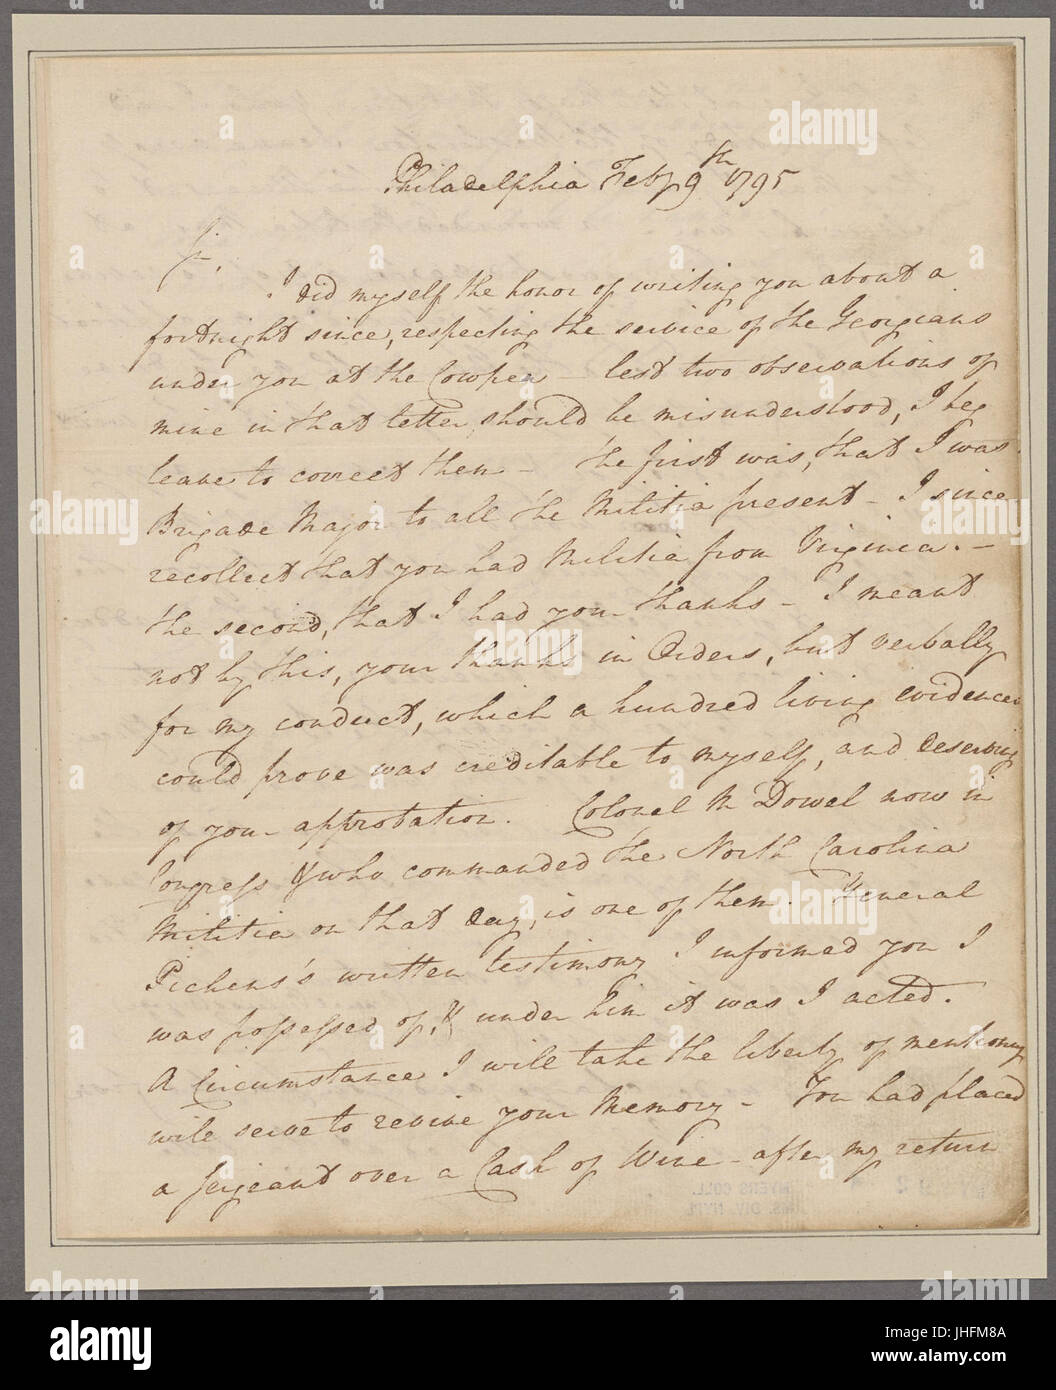 Philadelphia Feby 9th 1795
Sir,
I did myself the honor of writing you about a
fortnight since, respecting the service of the Georgians
under you at the Cowpen - lest two observations of
mine in that letter, should be misunderstood, I beg
leave to correct them - The first was, that I was
Brigade Major to all the Militia present - I since
recollect that you had Militia from Virginia. -
the second, that I had your thanks - I meant
not by this, your thanks in Orders, but verbally
for my conduct, which a hundred living evidences
could prove was creditable to myself, and deserving
of your approbation. Colonel Mc Dowel now in
Congress & who commanded the North Carolina
Militia on that day, is one of them. General
Pickens's written testimony I informed you I
was possessed of, & under him it was I acted.
A Circumstance I will take the liberty of mentioning
will serve to revive your Memory - You had placed
a Serjeant over a Cask of Wine - after my return
MYERS COLL.
MS. DIV. NYPL
alamy stock photo
alamy
Image ID: JHFM8A
www.alamy.com